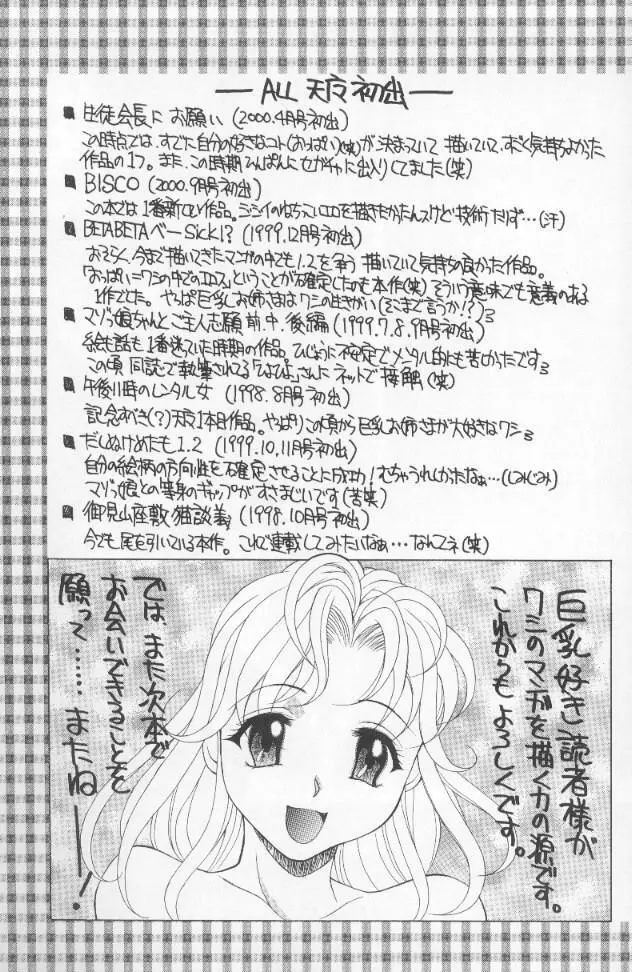 ALL 天魔 初出
■ 生徒会長に お願い (2000.4月号初出)
この時点では、すでに自分の好きなコト(おっぱい)(笑)が 決まっていて 描いていて、すごく気持ちよかった
作品の1つ。また、この時期 ひんぱんに セガ に出入りしてました(笑)
■ BISCO (2000.9月号初出)
この本では 1番新しい作品。 エロを描きたかったんスけど 技術たりず…(汗)
■ BETABETAべー Sick!? (1999.12月号初出)
おそらく、今まで描いてきたマンガの中でも 1.2を争う 描いていて気持ちの良かった作品。
「おっぱい=ワシの中でのエロス」ということが石確定したのも本作(笑) そういう意味でも 意義のある
1作でした。 やっぱ巨乳お姉さまは ワシの生きがい(そこまで言うか!?)
■ マゾっ娘ちゃんとご主人志願 前.中.後編 (1999.7.8.9月号初出)
絵も話も 1番迷っていた時期の作品。ひじょうに 不安定でメンタル的にも苦しかったです
この頃 同誌で執筆される「 」さんに ネットで 接触(笑)
■ 午後11時のレンタル女 (1998.8月号初出)
記念すべき(?)天魔1本目作品。やっぱりこの頃から巨乳お姉さまが大好きなワシ
■ だしぬけめたも 1.2 (1999.10.11月号初出)
自分の絵柄の方向性を石確定させることに成功! むちゃうれしかたなぁ…(しみじみ)
マゾっ娘との等身のギャップがすさまじいです(苦笑)
■ 御見山座敷猫談義 (1998.10月号初出)
今でも 尾を引いている本作。これで連載してみたいなぁ…なんてネ(笑)
巨乳好き読者様が
ワシのマンガを描く力の源です。
これからもよろしくです。
では、また次本で
お会いできることを
願って……またねー!